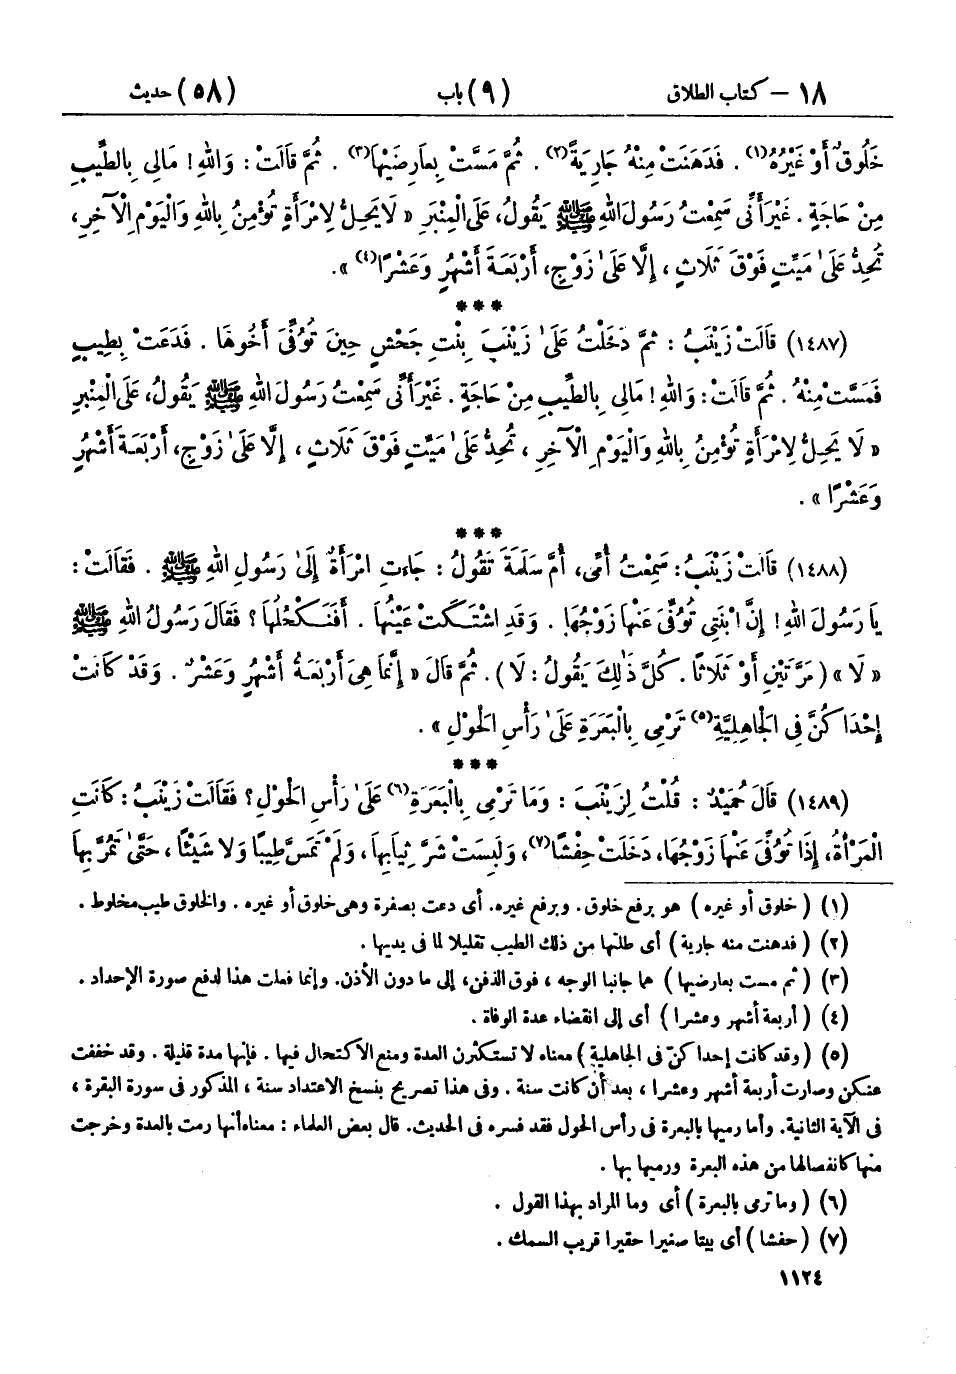 ١٨ – كتاب الطلاق (٩) باب (٥٨) حديث
خَلُوقٌ أَوْ غَيْرُهُ(١) . فَدَهَنَتْ مِنْهُ جَارِيَةً(٢) . ثُمَّ مَسَّتْ بِعَارِضَيْهَا(٣) . ثُمَّ قَالَتْ : وَاللهِ ! مَالِي بِالطِّيبِ
مِنْ حَاجَةٍ . غَيْرَ أَنِّي سَمِعْتُ رَسُولَ اللهِ ﷺ يَقُولُ، عَلَى الْمِنْبَرِ « لَا يَحِلُّ لِامْرَأَةٍ تُؤْمِنُ بِاللهِ وَالْيَوْمِ الْآخِرِ،
تُحِدُّ عَلَىٰ مَيِّتٍ فَوْقَ ثَلَاثٍ ، إِلَّا عَلَىٰ زَوْجٍ، أَرْبَعَةَ أَشْهُرٍ وَعَشْرًا(٤) ».
***
(١٤٨٧) قَالَتْ زَيْنَبُ : ثُمَّ دَخَلْتُ عَلَىٰ زَيْنَبَ بِنْتِ جَحْشٍ حِينَ تُوُفِّيَ أَخُوهَا . فَدَعَتْ بِطِيبٍ
فَمَسَّتْ مِنْهُ . ثُمَّ قَالَتْ : وَاللهِ ! مَالِي بِالطِّيبِ مِنْ حَاجَةٍ . غَيْرَ أَنِّي سَمِعْتُ رَسُولَ اللهِ ﷺ يَقُولُ، عَلَى الْمِنْبَرِ
« لَا يَحِلُّ لِامْرَأَةٍ تُؤْمِنُ بِاللهِ وَالْيَوْمِ الْآخِرِ ، تُحِدُّ عَلَىٰ مَيِّتٍ فَوْقَ ثَلَاثٍ ، إِلَّا عَلَىٰ زَوْجٍ، أَرْبَعَةَ أَشْهُرٍ
وَعَشْرًا » .
***
(١٤٨٨) قَالَتْ زَيْنَبُ : سَمِعْتُ أُمِّي، أُمَّ سَلَمَةَ تَقُولُ : جَاءَتِ امْرَأَةٌ إِلَىٰ رَسُولِ اللهِ ﷺ . فَقَالَتْ :
يَا رَسُولَ اللهِ ! إِنَّ ابْنَتِي تُوُفِّيَ عَنْهَا زَوْجُهَا. وَقَدِ اشْتَكَتْ عَيْنُهَا . أَفَنَكْحُلُهَا ؟ فَقَالَ رَسُولُ اللهِ ﷺ
« لَا » ( مَرَّتَيْنِ أَوْ ثَلَاثًا . كُلَّ ذَٰلِكَ يَقُولُ : لَا ) . ثُمَّ قَالَ « إِنَّمَا هِيَ أَرْبَعَةُ أَشْهُرٍ وَعَشْرٌ . وَقَدْ كَانَتْ
إِحْدَاكُنَّ فِي الْجَاهِلِيَّةِ(٥) تَرْمِي بِالْبَعَرَةِ عَلَىٰ رَأْسِ الْحَوْلِ » .
***
(١٤٨٩) قَالَ حُمَيْدٌ : قُلْتُ لِزَيْنَبَ : وَمَا تَرْمِي بِالْبَعَرَةِ(٦) عَلَىٰ رَأْسِ الْحَوْلِ ؟ فَقَالَتْ زَيْنَبُ : كَانَتِ
الْمَرْأَةُ، إِذَا تُوُفِّيَ عَنْهَا زَوْجُهَا، دَخَلَتْ حِفْشًا(٧)، وَلَبِسَتْ شَرَّ ثِيَابِهَا، وَلَمْ تَمَسَّ طِيبًا وَلَا شَيْئًا ، حَتَّىٰ تَمُرَّ بِهَا
(١) ( خلوق أو غيره ) هو برفع خلوق. وبرفع غيره. أى دعت بصفرة وهى خلوق أو غيره . والخلوق طيب مخلوط .
(٢) ( فدهنت منه جارية ) أى طلتها من ذلك الطيب تقليلا لما فى يديها .
(٣) ( ثم مست بعارضيها ) هما جانبا الوجه ، فوق الذقن، إلى ما دون الأذن. وإنما فعلت هذا لدفع صورة الإحداد .
(٤) ( أربعة أشهر وعشرا ) أى إلى انقضاء عدة الوفاة .
(٥) ( وقد كانت إحداكنّ فى الجاهلية ) معناه لا تستكثرن العدة ومنع الاكتحال فيها . فإنها مدة قليلة . وقد خففت
عنكن وصارت أربعة أشهر وعشرا ، بعد أن كانت سنة . وفى هذا تصريح بنسخ الاعتداد سنة ، المذكور فى سورة البقرة ،
فى الآية الثانية. وأما رميها بالبعرة فى رأس الحول فقد فسره فى الحديث. قال بعض العلماء : معناه أنها رمت بالعدة وخرجت
منها كانفصالها من هذه البعرة ورميها بها .
(٦) ( وما ترمى بالبعرة ) أى وما المراد بهذا القول .
(٧) ( حفشا ) أى بيتا صغيرا حقيرا قريب السمك .
١١٢٤